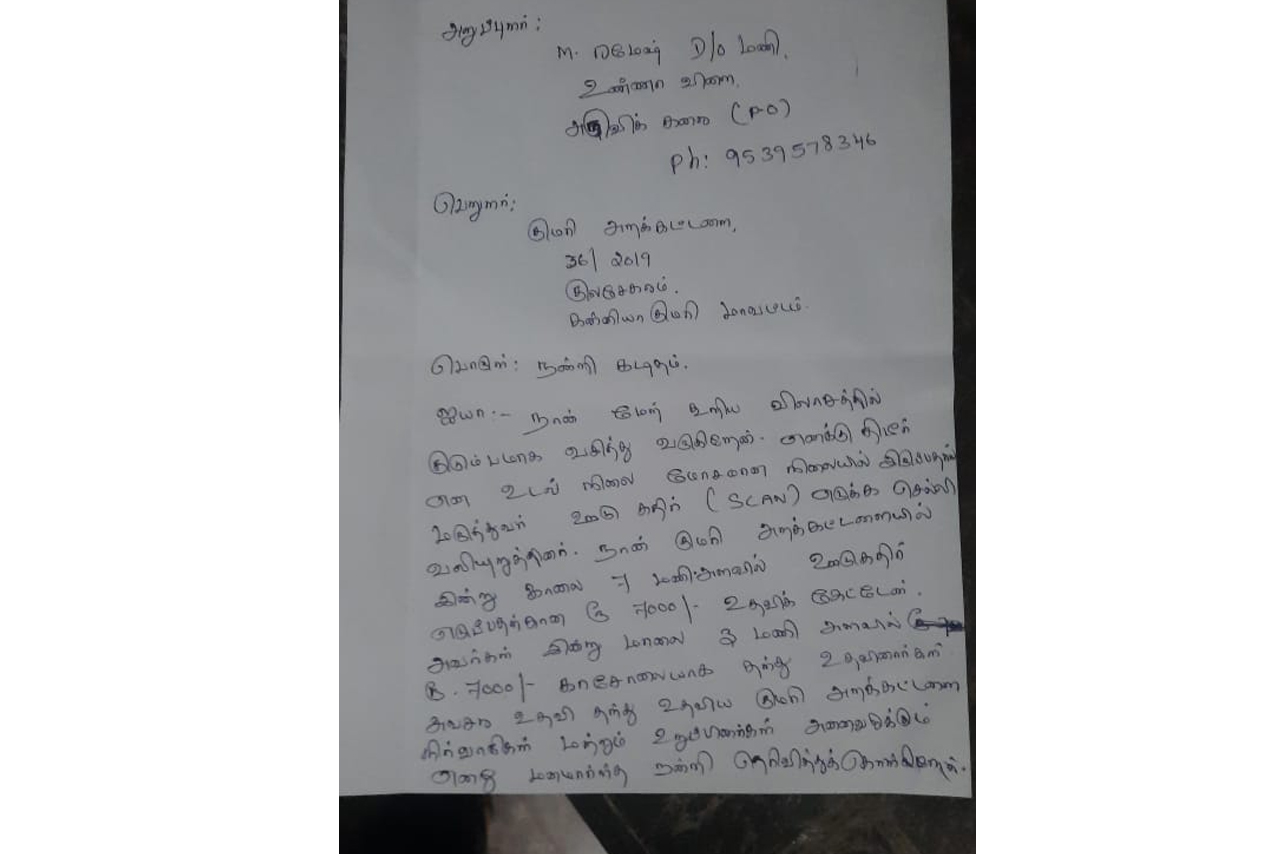 அனுப்புனர் :
M. ரமேஷ் D/o மணி,
உண்ணா விளை,
அருவிக் கரை (P.O)
Ph: 9539578346
பெறுநர்:
குமரி அறக்கட்டளை,
36/ 2019
குலசேகரம்.
கன்னியாகுமரி மாவட்டம்.
பொருள்: நன்றி கடிதம்.
ஐயா:- நான் மேற் கூறிய விலாசத்தில்
குடும்பமாக வசித்து வருகிறேன். எனக்கு திடீர்
என உடல் நிலை மோசமான நிலையில் இருப்பதால்
மருத்துவர் ஊடு கதிர் (SCAN) எடுக்க சொல்லி
வலியுறுத்தினர். நான் குமரி அறக்கட்டளையில்
இன்று காலை 7 மணி அளவில் ஊடுகதிர்
எடுப்பதற்கான ரூ 7000/- உதவிக் கேட்டேன்.
அவர்கள் இன்று மாலை 3 மணி அளவில்
ரூ. 7000/- காசோலையாக தந்து உதவினார்கள்
அவசர உதவி தந்து உதவிய குமரி அறக்கட்டளை
நிர்வாகிகள் மற்றும் உறுப்பினர்கள் அனைவருக்கும்
எனது மனமார்ந்த நன்றி தெரிவித்துக்கொள்கிறேன்.